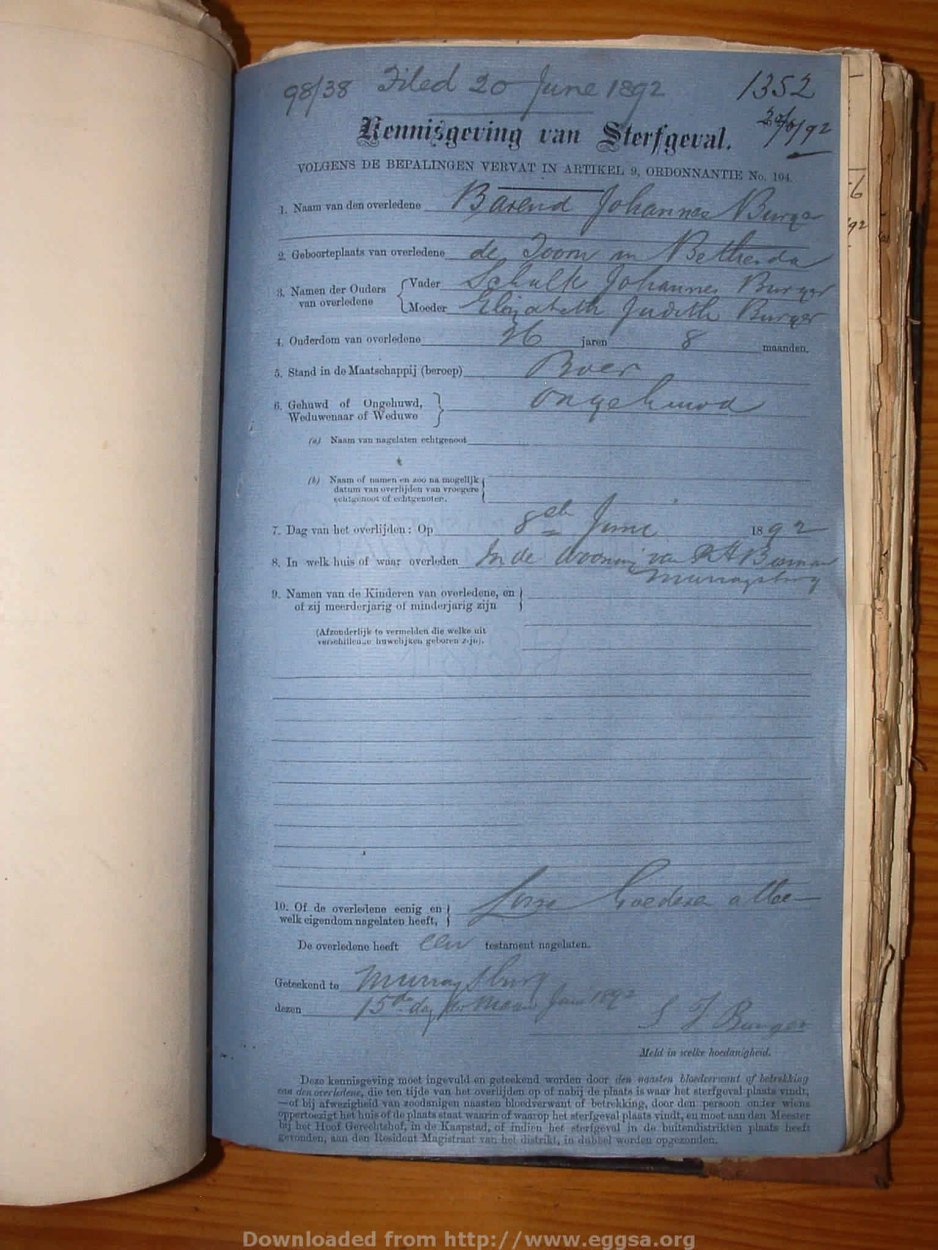 98/38 Filed 20 June 1892 1352
Kennisgeving van Sterfgeval.
VOLGENS DE BEPALINGEN VERVAT IN ARTIKEL 9, ORDONNANTIE No. 104.
1. Naam van den overledene Barend Johannes Burger
2. Geboorteplaats van overledene de Doorn in Bethesda
3. Namen der Ouders van overledene { Vader Schalk Johannes Burger
Moeder Elizabeth Judith Burger
4. Ouderdom van overledene 26 jaren 8 maanden.
5. Stand in de Maatschappij (beroep) Boer
6. Gehuwd of Ongehuwd, Weduwenaar of Weduwe } ongehuwd
(a) Naam van nagelaten echtgenoot
(b) Naam of namen en zoo na mogelijk
datum van overlijden van vroegere
echtgenoot of echtgenoten.
7. Dag van het overlijden: Op 8ste Juni 1892
8. In welk huis of waar overleden In de wooning van
Murraysburg
9. Namen van de Kinderen van overledene, en
of zij meerderjarig of minderjarig zijn
(Afzonderlijk te vermelden die welke uit
verschillende huwelijken geboren zijn).
10. Of de overledene eenig en
welk eigendom nagelaten heeft, } Losse Goederen
De overledene heeft een testament nagelaten.
Geteekend te Murraysburg
dezen 15de dag der Maand Juni 1892 S J Burger
Meld in welke hoedanigheid.
Deze kennisgeving moet ingevuld en geteekend worden door den naasten bloedverwant of betrekking
van den overledene, die ten tijde van het overlijden op of nabij de plaats is waar het sterfgeval plaats vindt,
—of bij afwezigheid van zoodanigen naasten bloedverwant of betrekking, door den persoon onder wiens
oppertoezigt het huis of de plaats staat waarin of waarop het sterfgeval plaats vindt, en moet aan den Meester
bij het Hoof Geregtshof, in de Kaapstad, of indien het sterfgeval in de buitendistrikten plaats heeft
gevonden, aan den Resident Magistraat van het distrikt, in dubbel worden opgezonden.
Downloaded from http://www.eggsa.org